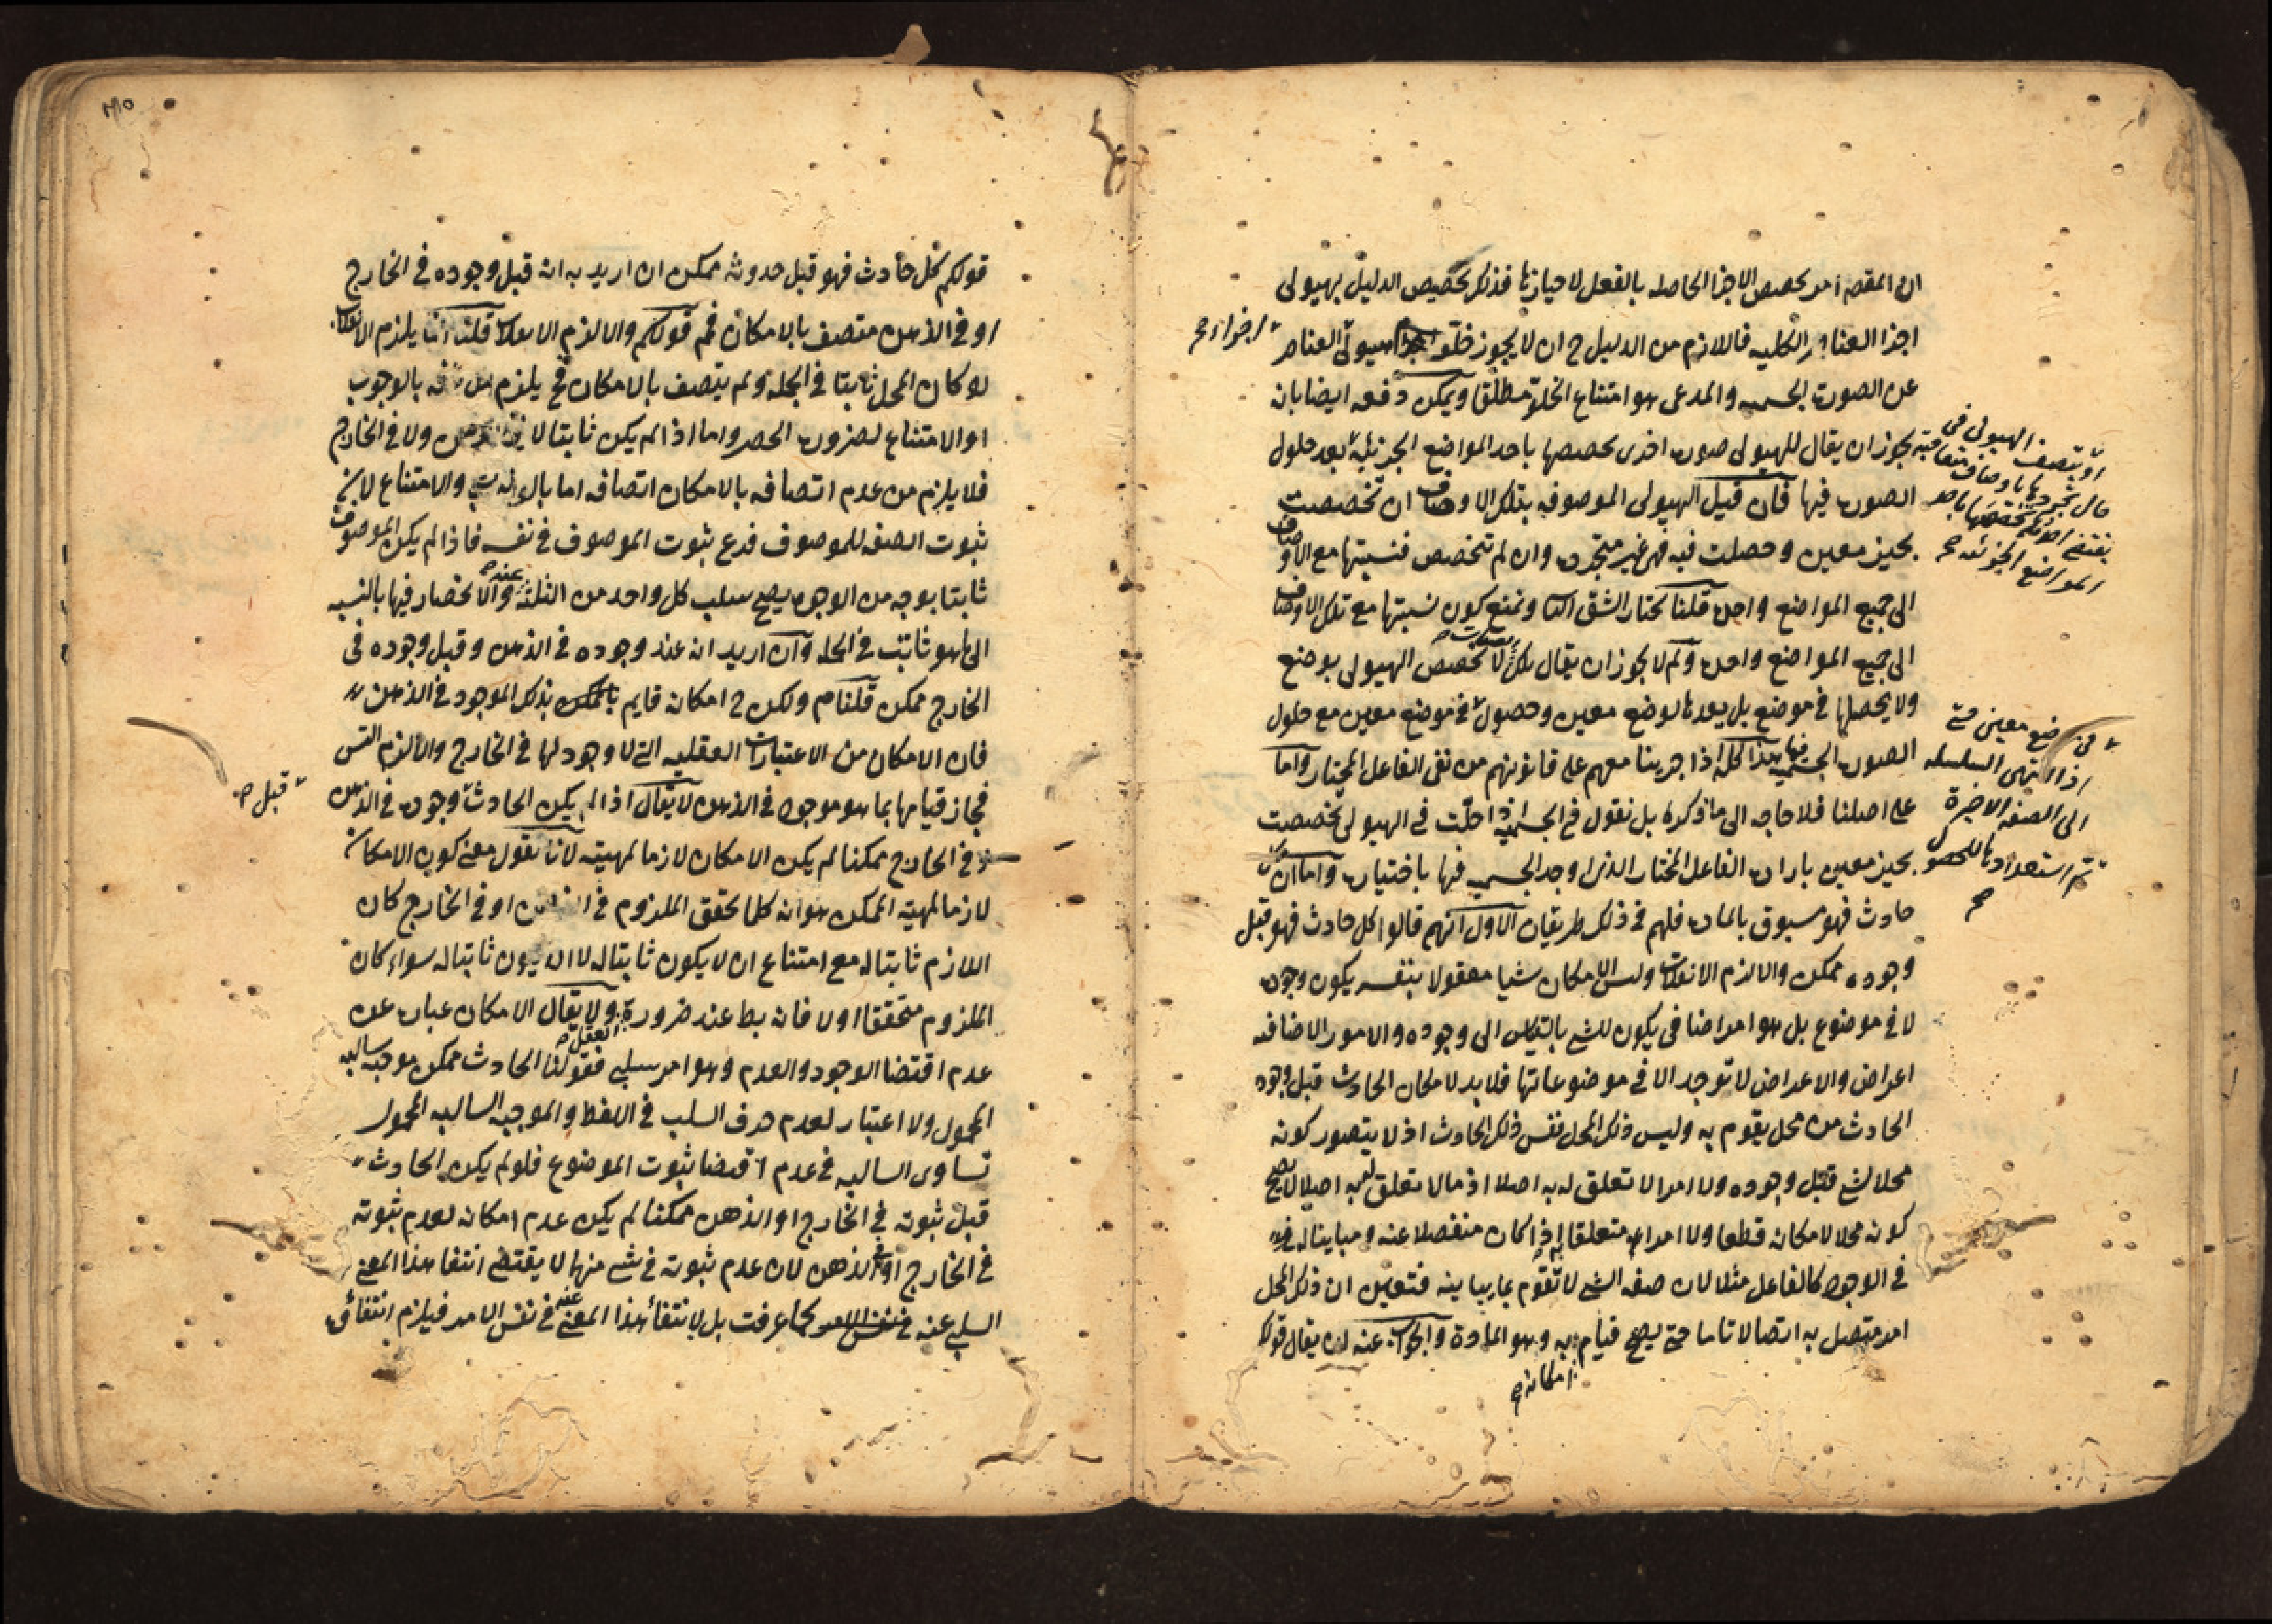 ان المقصد امر يخصص الاجزا الحاصله بالفعل لاحيازها فذكر تخصيص الدليل بهيولى
اجزا العناصر الكليه فاللازم من الدليل ح ان لا يجوز خلو هيولى العناصر
اجزاء صح
عن الصورة الجسميه والمدعى هو امتناع الخلو مطلقا ويمكن دفعه ايضا بان
يجوز ان يقال للهيولى صورة اخرى تخصصها باحد المواضع الجزئية بعد حلول
او تتصف الهيولى فى
حال تجردها باوصاف متعاقبة
يقتضى احدها تخصصها باحد
المواضع الجزئيه صح
الصورة فيها فان قيل الهيولى الموصوفه بتلك الاوصاف ان تخصصت
بحيز معين وحصلت فيه فهى غير متجردة وان لم تتخصص فنسبتها مع الاوصاف
الى جميع المواضع واحدة قلنا نختار الشق الثا ونمنع كون نسبتها مع تلك الاوصاف
الى جميع المواضع واحدة ولم لا يجوز ان يقال تلك لا تخصص الهيولى بوضع
ولا يحصلها فى موضع بل يعدها لوضع معين وحصول فى موضع معين مع حلول
فى موضع معين حتى
اذا انتهى السلسله
الى الصفه الاخيرة
تم استعدادها للحصول
صح
الصورة الجسمية فيها هذا كله اذا جرينا معهم على قانونهم من نفى الفاعل المختار واما
على اصلنا فلا حاجه الى ما ذكره بل نقول فى الجسمية اذا حلت فى الهيولى تخصصت
بحيز معين بارادة الفاعل المختار الذى اوجد الجسميه فيها باختياره واما ان كل
حادث فهو مسبوق بالمادة فلهم فى ذلك طريقان الاول انهم قالوا كل حادث فهو قبل
وجوده ممكن والا لزم الانقلاب وليس الامكان شيا معقولا بنفسه يكون وجوده
لا فى موضوع بل هو امر اضافى يكون للشى بالقياس الى وجوده والامور الاضافيه
اعراض والاعراض لا توجد الا فى موضوعاتها فلا بد لامكان الحادث قبل وجود
الحادث من محل يقوم به وليس ذلك المحل نفس ذلك الحادث اذ لا يتصور كونه
محلا لشى قبل وجوده ولا امرا لا تعلق له به اصلا اذ ما لا تعلق له به اصلا لا يصح
كونه محلا لامكانه قطعا ولا امرا متعلقا به اذا كان منفصلا عنه ومباينا له
فى الوجود كالفاعل مثلا لان صفه الشى لا تقوم بما يباينه فتعين ان ذلك المحل
امر متصل به اتصالا تاما حتى يصح قيام به وهو المادة والجواب عنه ان يقال قولكم
امكانه صح
قولكم كل حادث فهو قبل حدوثه ممكن ان اريد به انه قبل وجوده فى الخارج
او فى الذهن متصف بالامكان فمم قولكم والا لزم الانقلاب قلنا انما يلزم الانقلاب
لو كان المحل ثابتا فى الجمله ولم يتصف بالامكان فح يلزم اتصافه بالوجوب
او الامتناع لضرورة الحصر واما اذا لم يكن ثابتا لا فى الذهن ولا فى الخارج
فلا يلزم من عدم اتصافه بالامكان اتصافه اما بالوجوب والامتناع لان
ثبوت الصفه للموصوف فرع ثبوت الموصوف فى نفسه فاذا لم يكن الموصوف
ثابتا بوجه من الوجوه يصح سلب كل واحد من الثلثة عنه والانحصار فيها بالنسبه
الى ما هو ثابت فى الجمله وان اريد انه عند وجوده فى الذهن وقبل وجوده فى
الخارج ممكن قلنا م ولكن ح امكانه قايم بالممكن بذلك الموجود فى الذهن
فان الامكان من الاعتبارات العقليه التى لا وجود لها فى الخارج والا لزم التس
فجاز قيامها بما هو موجود فى الذهن لا يقال اذا لم يكن الحادث وجوده فى الذهن
قبل صح
وفى الخارج ممكنا لم يكن الامكان لازما لمهيته لانا نقول معنى كون الامكان
لازما لمهية الممكن هو انه كلما تحقق الملزوم فى الذهن او فى الخارج كان
اللازم ثابتا له مع امتناع ان لا يكون ثابتا له لا ان يكون ثابتا له سواء كان
الملزوم متحققا او لا فانه بط عند ضرورة العقل صح ولا يقال الامكان عبارة عن
عدم اقتضا الوجود والعدم وهو امر سلبى فقولنا الحادث ممكن موجبه سالبه
المحمول ولا اعتبار لعدم حرف السلب فى اللفظ والموجبه السالبه المحمول
تساوى السالبه فى عدم اقتضا ثبوت الموضوع فلو لم يكن الحادث
قبل ثبوته فى الخارج او الذهن ممكنا لم يكن عدم امكانه لعدم ثبوته
فى الخارج او فى الذهن لان عدم ثبوته فى شى منهما لا يقتضى انتفا هذا المعنى
السلبى عنه فى نفس الامر كما عرفت بل لانتفاء هذا المعنى عنه فى نفس الامر فيلزم انتفاؤه